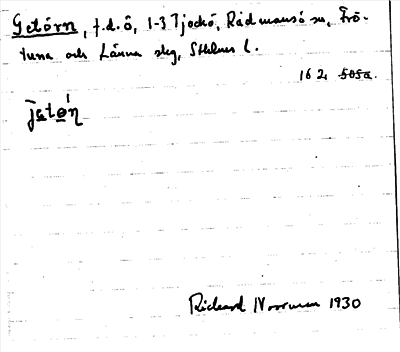 Getörn, f.d. ö, 1-3 Tjockö, Rådmansö sn, Frö-
tuna och Länna skg, Sthlms l.
162, 505a.
jetọ́n
Rickard Norrman 1930